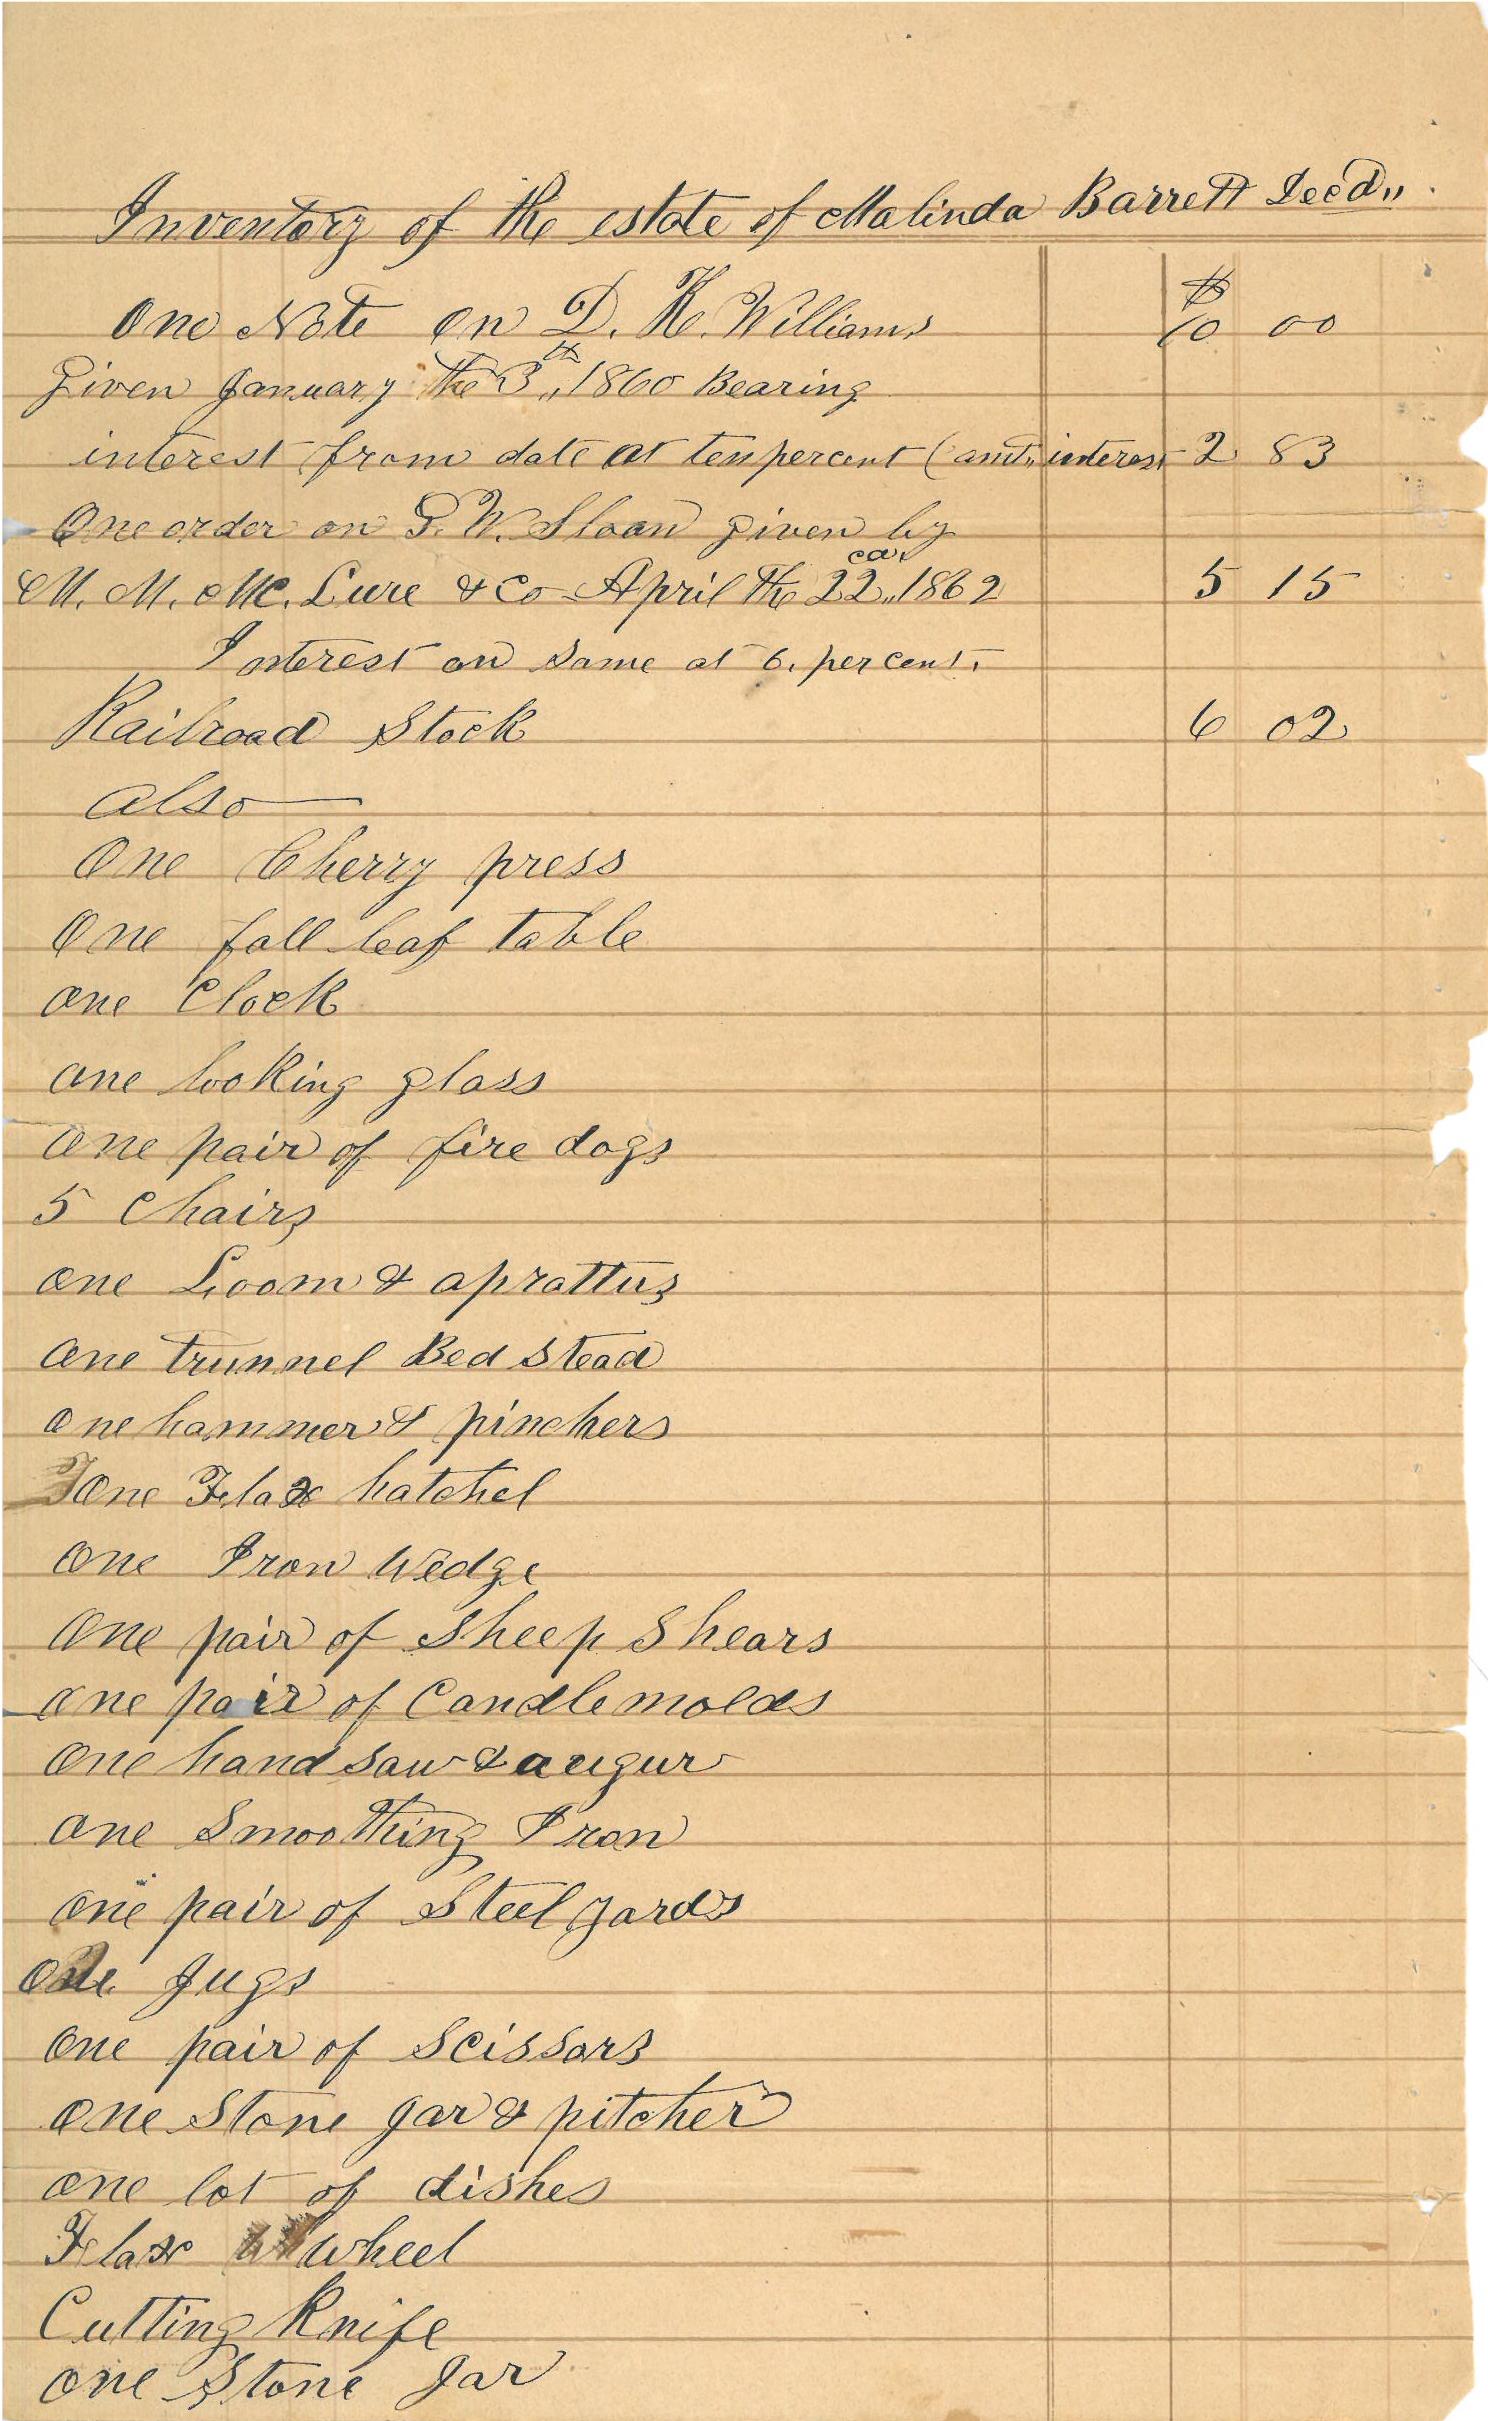 Inventory of the estate of Malinda Barrett Decd,,
One Note on D. K. Williams $10 00
Given January the 3th,, 1860 Bearing
interest from date at ten percent (amt,, interest 2 83
One order on G. W. Sloan given by
M. M. Mc. Lure & Co April the 22,, 1862 5 15
Interest on same at 6. per cent.
Railroad Stock 6 02
also
One Cherry press
One fall leaf table
one Clock
one looking glass
one pair of fire dogs
5 Chairs
one Loom & aprattus
one trunnel Bed stead
one hammer & pinchers
one Flax hatchel
one Iron Wedge
One pair of Sheep Shears
one pair of Candlemolds
one hand saw & augur
one Smoothing Iron
one pair of Steel yards
Jugs
one pair of Scissors
one Stone Jar & pitcher
one lot of dishes
Flax wheel
Cutting Knife
one Stone Jar